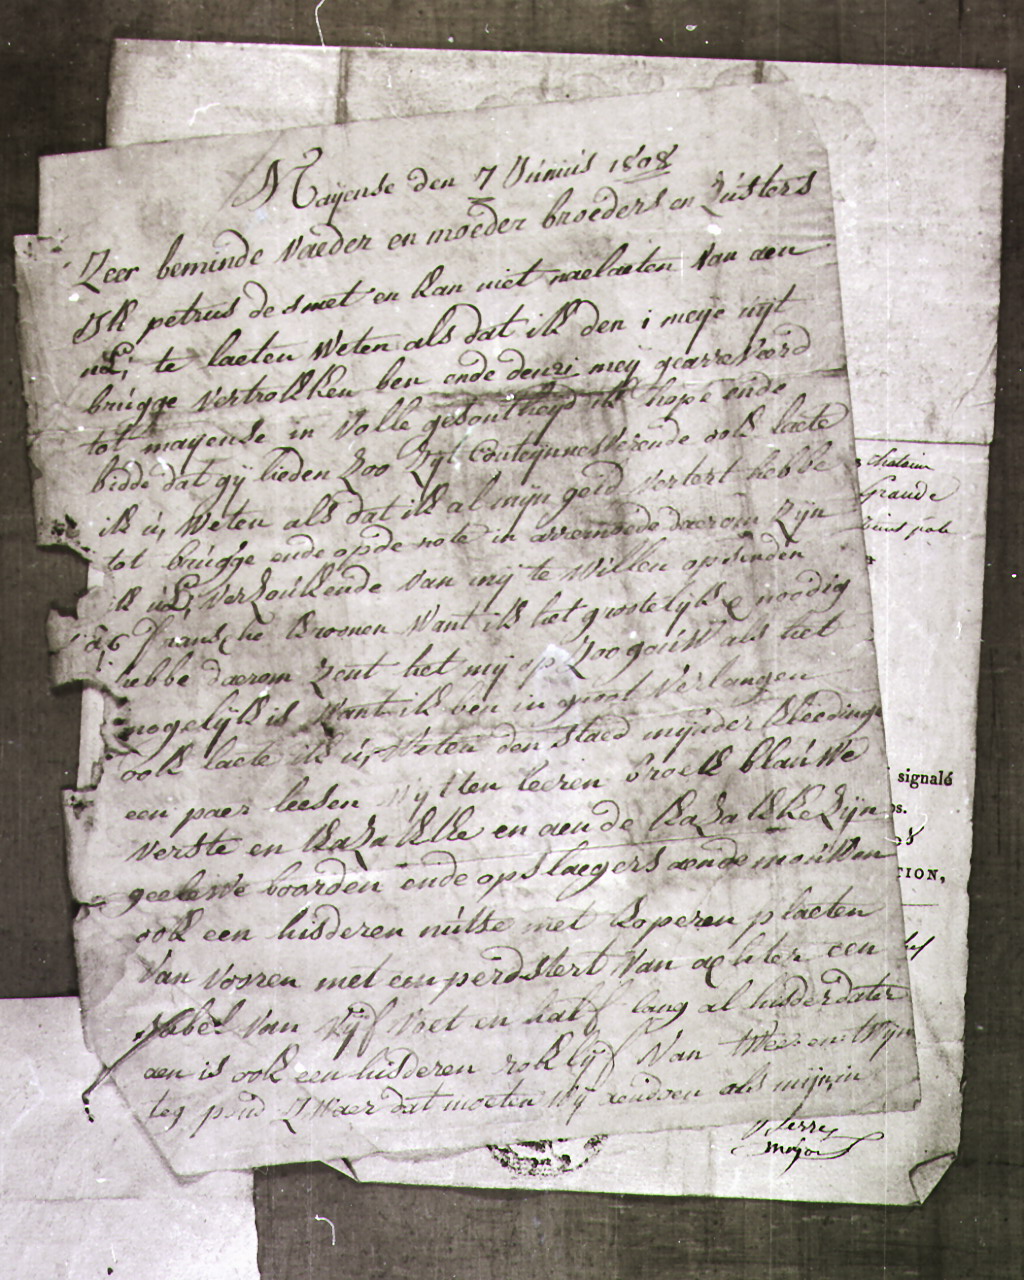 Mayense den 7 Junius 1808
Zeer beminde Vaeder en moeder broeders en Zusters
Ik petrus de smet en kan niet naelaeten Van aen
uL; te laeten Weten als dat ik den i meye uyt
brugge Vertrokken ben ende den 21 mey gearreVeerd
tot mayense in Volle gesontheyd ik hope ende
bidde dat gy lieden Zoo Zyt Conteynneerende ook laete
ik u, Weten als dat ik al mijn geld Vertert hebbe
tot brugge ende op de rote in arremoede daerom Zijn
ik uL; Verzoukende Van mij te Willen opsenden
5 a 6 fransche kroonen Want ik het grootelijks noodig
hebbe daerom Zent het mij op Zoo gouW als het
mogelijk is Want ik ben in groot Verlangen
ook laete ik u, Weten den staed mijnder kleeding
een paer leesen Wytten leeren broek blauWe
Verste en kaZakke en aen de kaZakke Zijn
geeleWe boorden ende opslaegers aen de mouWen
ook een huideren mutse met koperen plaeten
Van Vooren met een perdstert Van achter een
sabel Van Vijf Voet en half lang al huider dater
aen is ook een huideren rok lijf Van tWee en tWyn
teg pond ZWaer dat moeten Wij aendoen als mijn in
chatain
Grande
signalé
os.
TION,
major